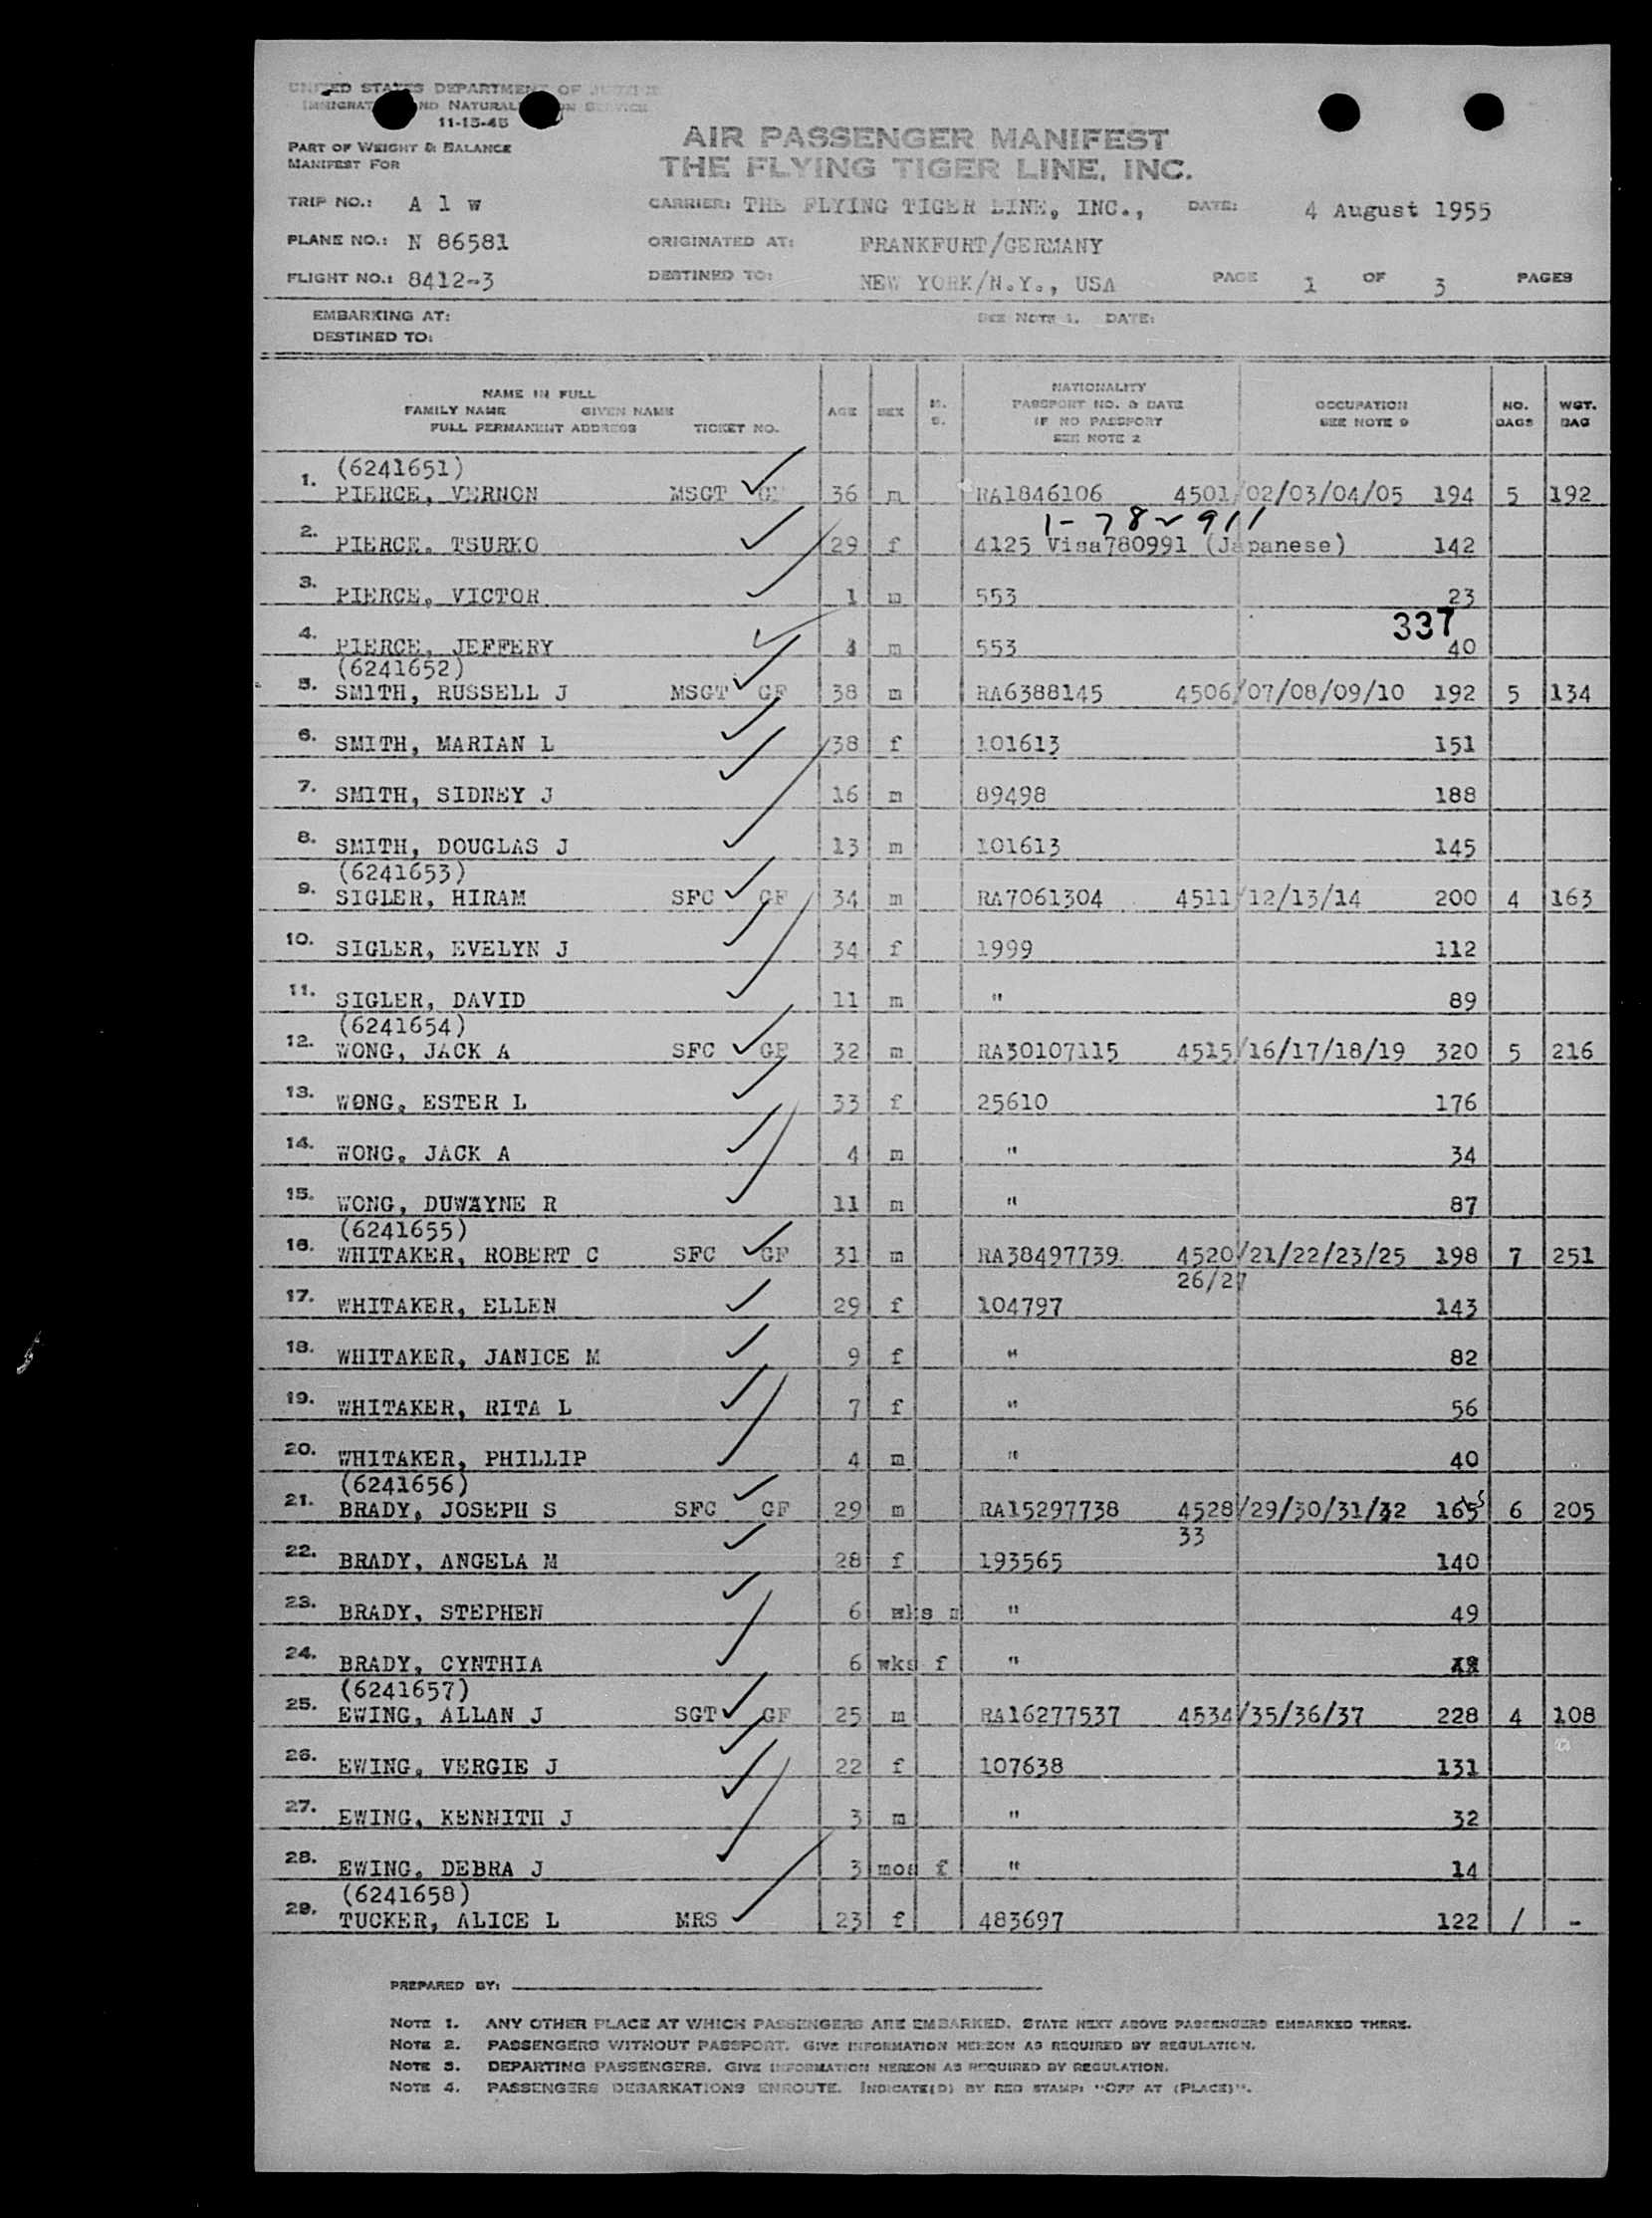 UNITED STATES DEPARTMENT OF JUSTICE
IMMIGRATION AND NATURALIZATION SERVICE
11-15-45
PART OF WEIGHT & BALANCE
MANIFEST FOR
AIR PASSENGER MANIFEST
THE FLYING TIGER LINE, INC.
TRIP NO.: A 1 w CARRIER: THE FLYING TIGER LINE, INC., DATE: 4 August 1955
PLANE NO.: N 86581 ORIGINATED AT: FRANKFURT/GERMANY
FLIGHT NO.: 8412-3 DESTINED TO: NEW YORK/N.Y., USA PAGE 1 OF 3 PAGES
EMBARKING AT: SEE NOTE 1. DATE:
DESTINED TO:
NAME IN FULL
FAMILY NAME GIVEN NAME
FULL PERMANENT ADDRESS TICKET NO.
AGE SEX M. S.
NATIONALITY
PASSPORT NO. & DATE
IF NO PASSPORT
SEE NOTE 2
OCCUPATION
SEE NOTE 9
NO. BAGS
WGT. BAG
(6241651)
1. PIERCE, VERNON MSGT GF 36 m RA1846106 4501/02/03/04/05 194 5 192
1- 78 911
2. PIERCE, TSURKO 29 f 4125 Visa780991 (Japanese) 142
3. PIERCE, VICTOR 1 m 553 23
337
4. PIERCE, JEFFERY m 553 40
(6241652)
5. SMITH, RUSSELL J MSGT GF 38 m RA6388145 4506/07/08/09/10 192 5 134
6. SMITH, MARIAN L 38 f 101613 151
7. SMITH, SIDNEY J 16 m 89498 188
8. SMITH, DOUGLAS J 13 m 101613 145
(6241653)
9. SIGLER, HIRAM SFC GF 34 m RA7061304 4511/12/13/14 200 4 163
10. SIGLER, EVELYN J 34 f 1999 112
11. SIGLER, DAVID 11 m " 89
(6241654)
12. WONG, JACK A SFC GF 32 m RA30107115 4515/16/17/18/19 320 5 216
13. WONG, ESTER L 33 f 25610 176
14. WONG, JACK A 4 m " 34
15. WONG, DUWAYNE R 11 m " 87
(6241655)
16. WHITAKER, ROBERT C SFC GF 31 m RA38497739 4520/21/22/23/25 198 7 251
26/27
17. WHITAKER, ELLEN 29 f 104797 143
18. WHITAKER, JANICE M 9 f " 82
19. WHITAKER, RITA L 7 f " 56
20. WHITAKER, PHILLIP 4 m " 40
(6241656)
21. BRADY, JOSEPH S SFC GF 29 m RA15297738 4528/29/30/31/32 165 6 205
33
22. BRADY, ANGELA M 28 f 193565 140
23. BRADY, STEPHEN 6 wks m " 49
24. BRADY, CYNTHIA 6 wks f "
(6241657)
25. EWING, ALLAN J SGT GF 25 m RA16277537 4534/35/36/37 228 4 108
26. EWING, VERGIE J 22 f 107638 131
27. EWING, KENNITH J 3 m " 32
28. EWING, DEBRA J 3 mos f " 14
(6241658)
29. TUCKER, ALICE L MRS 23 f 483697 122 / -
PREPARED BY:
NOTE 1. ANY OTHER PLACE AT WHICH PASSENGERS ARE EMBARKED. STATE NEXT ABOVE PASSENGERS EMBARKED THERE.
NOTE 2. PASSENGERS WITHOUT PASSPORT. GIVE INFORMATION HEREON AS REQUIRED BY REGULATION.
NOTE 3. DEPARTING PASSENGERS. GIVE INFORMATION HEREON AS REQUIRED BY REGULATION.
NOTE 4. PASSENGERS DEBARKATIONS ENROUTE. INDICATE(D) BY RED STAMP: "OFF AT (PLACE)".